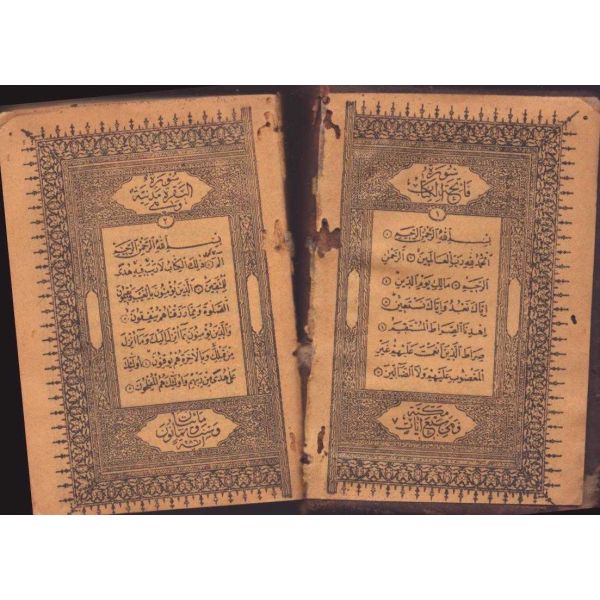 سورة
فاتحة الكتاب
١
بسم الله الرحمن الرحيم
الحمد لله رب العالمين الرحمن
الرحيم مالك يوم الدين
اياك نعبد واياك نستعين
اهدنا الصراط المستقيم
صراط الذين انعمت عليهم غير
المغضوب عليهم ولا الضالين
مكية
وهي سبع آيات
سورة
البقرة مدنية
وهي
٢
بسم الله الرحمن الرحيم
الم ذلك الكتاب لا ريب فيه هدى
للمتقين الذين يؤمنون بالغيب ويقيمون
الصلوة ومما رزقناهم ينفقون
والذين يؤمنون بما انزل اليك وما انزل
من قبلك وبالآخرة هم يوقنون اولئك
على هدى من ربهم واولئك هم المفلحون
مايتان
وست وثمانون